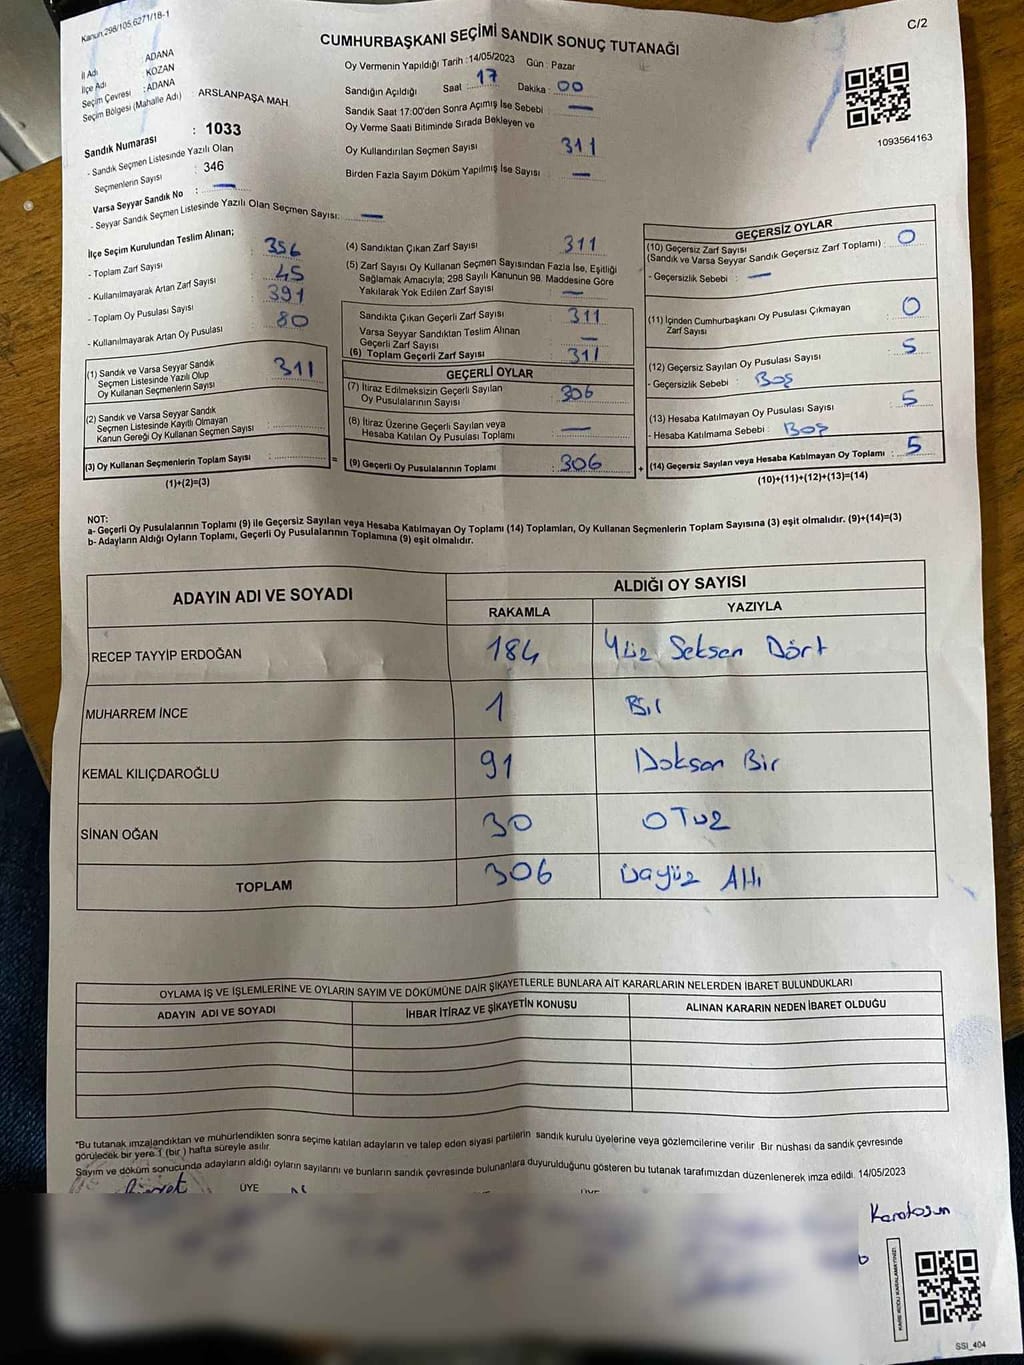 Kanun.298/105,6271/18-1
C/2
CUMHURBAŞKANI SEÇİMİ SANDIK SONUÇ TUTANAĞI
İl Adı : ADANA
İlçe Adı : KOZAN
Seçim Çevresi : ADANA
Seçim Bölgesi (Mahalle Adı) : ARSLANPAŞA MAH.
Oy Vermenin Yapıldığı Tarih : 14/05/2023 Gün : Pazar
Sandığın Açıldığı Saat : 17 Dakika : 00
Sandık Saat 17:00'den Sonra Açımış İse Sebebi : —
Oy Verme Saati Bitiminde Sırada Bekleyen ve
Oy Kullandırılan Seçmen Sayısı 311
Birden Fazla Sayım Döküm Yapılmış İse Sayısı —
1093564163
Sandık Numarası : 1033
- Sandık Seçmen Listesinde Yazılı Olan
Seçmenlerin Sayısı : 346
Varsa Seyyar Sandık No : —
- Seyyar Sandık Seçmen Listesinde Yazılı Olan Seçmen Sayısı: —
İlçe Seçim Kurulundan Teslim Alınan;
- Toplam Zarf Sayısı : 356
- Kullanılmayarak Artan Zarf Sayısı : 45
- Toplam Oy Pusulası Sayısı : 391
- Kullanılmayarak Artan Oy Pusulası : 80
(1) Sandık ve Varsa Seyyar Sandık
Seçmen Listesinde Yazılı Olup
Oy Kullanan Seçmenlerin Sayısı : 311
(2) Sandık ve Varsa Seyyar Sandık
Seçmen Listesinde Kayıtlı Olmayan
Kanun Gereği Oy Kullanan Seçmen Sayısı :
(3) Oy Kullanan Seçmenlerin Toplam Sayısı :
(1)+(2)=(3)
=
(4) Sandıktan Çıkan Zarf Sayısı 311
(5) Zarf Sayısı Oy Kullanan Seçmen Sayısından Fazla İse, Eşitliği
Sağlamak Amacıyla; 298 Sayılı Kanunun 98. Maddesine Göre
Yakılarak Yok Edilen Zarf Sayısı : —
Sandıkta Çıkan Geçerli Zarf Sayısı : 311
Varsa Seyyar Sandıktan Teslim Alınan
Geçerli Zarf Sayısı : —
(6) Toplam Geçerli Zarf Sayısı : 311
GEÇERLİ OYLAR
(7) İtiraz Edilmeksizin Geçerli Sayılan
Oy Pusulalarının Sayısı : 306
(8) İtiraz Üzerine Geçerli Sayılan veya
Hesaba Katılan Oy Pusulası Toplamı : —
(9) Geçerli Oy Pusulalarının Toplamı : 306
+
GEÇERSİZ OYLAR
(10) Geçersiz Zarf Sayısı
(Sandık ve Varsa Seyyar Sandık Geçersiz Zarf Toplamı) : 0
- Geçersizlik Sebebi : —
(11) İçinden Cumhurbaşkanı Oy Pusulası Çıkmayan
Zarf Sayısı : 0
(12) Geçersiz Sayılan Oy Pusulası Sayısı : 5
- Geçersizlik Sebebi : Boş
(13) Hesaba Katılmayan Oy Pusulası Sayısı : 5
- Hesaba Katılmama Sebebi : Boş
(14) Geçersiz Sayılan veya Hesaba Katılmayan Oy Toplamı : 5
(10)+(11)+(12)+(13)=(14)
NOT:
a- Geçerli Oy Pusulalarının Toplamı (9) ile Geçersiz Sayılan veya Hesaba Katılmayan Oy Toplamı (14) Toplamları, Oy Kullanan Seçmenlerin Toplam Sayısına (3) eşit olmalıdır. (9)+(14)=(3)
b- Adayların Aldığı Oyların Toplamı, Geçerli Oy Pusulalarının Toplamına (9) eşit olmalıdır.
ADAYIN ADI VE SOYADI ALDIĞI OY SAYISI
RAKAMLA YAZIYLA
RECEP TAYYİP ERDOĞAN 184 Yüz Seksen Dört
MUHARREM İNCE 1 Bir
KEMAL KILIÇDAROĞLU 91 Doksan Bir
SİNAN OĞAN 30 OTUZ
TOPLAM 306 üçyüz Altı
OYLAMA İŞ VE İŞLEMLERİNE VE OYLARIN SAYIM VE DÖKÜMÜNE DAİR ŞİKAYETLERLE BUNLARA AİT KARARLARIN NELERDEN İBARET BULUNDUKLARI
ADAYIN ADI VE SOYADI İHBAR İTİRAZ VE ŞİKAYETİN KONUSU ALINAN KARARIN NEDEN İBARET OLDUĞU
*Bu tutanak imzalandıktan ve mühürlendikten sonra seçime katılan adayların ve talep eden siyasi partilerin sandık kurulu üyelerine veya gözlemcilerine verilir. Bir nüshası da sandık çevresinde
görülecek bir yere 1 (bir ) hafta süreyle asılır.
Sayım ve döküm sonucunda adayların aldığı oyların sayılarını ve bunların sandık çevresinde bulunanlara duyurulduğunu gösteren bu tutanak tarafımızdan düzenlenerek imza edildi. 14/05/2023
ÜYE
Karatosun
SSI_404